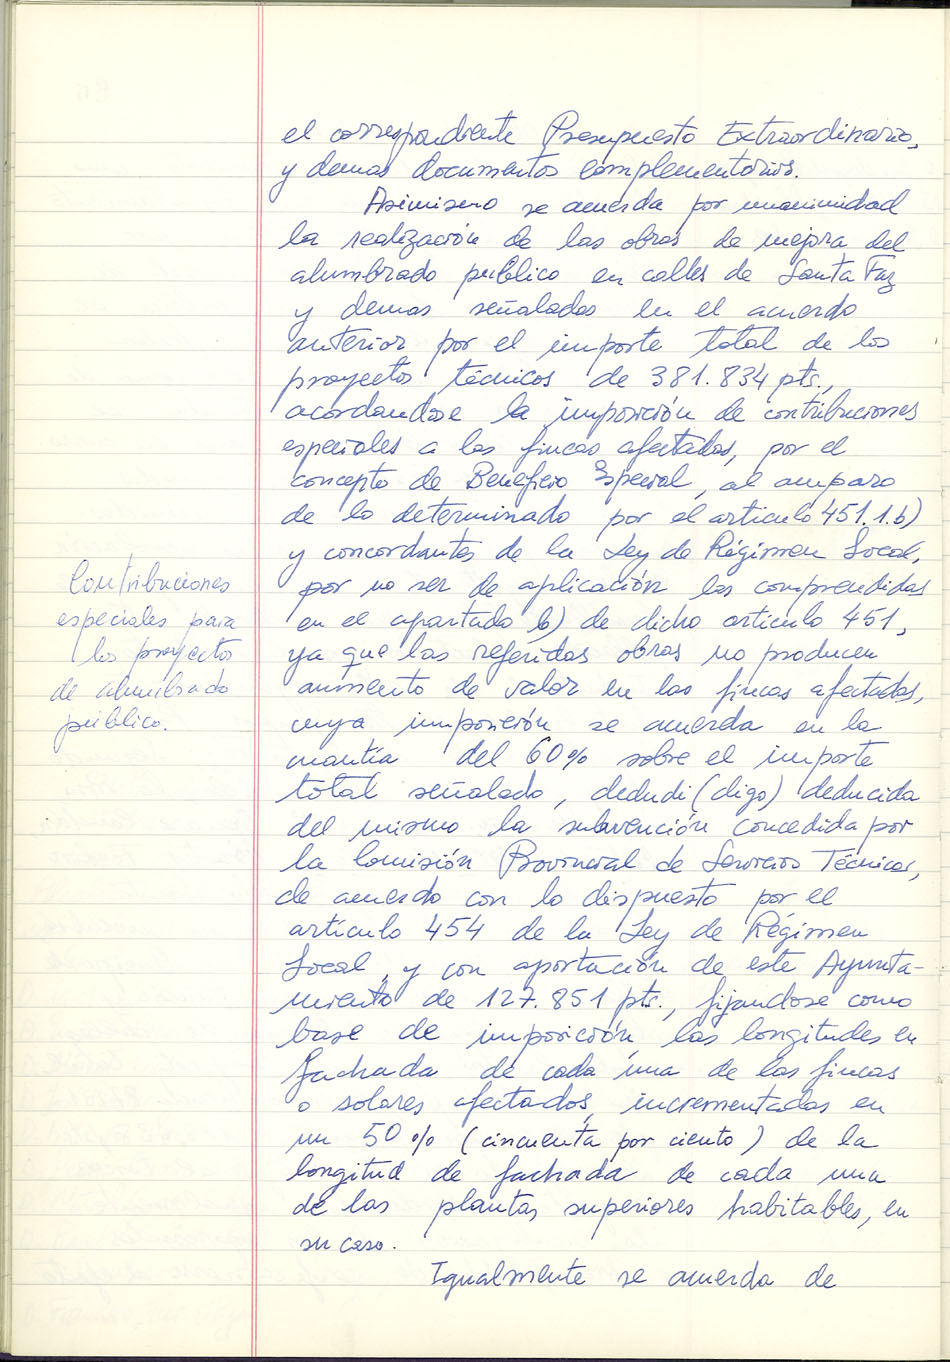 el correspondiente Presupuesto Extraordinario,
y demas documentos complementarios.
Asimismo se acuerda por unanimidad
la realización de las obras de mejora del
alumbrado publico en calles de Santa Faz
y demas señalados en el acuerdo
anterior por el importe total de los
proyectos técnicos de 381.834 pts.,
acordandose la imposición de contribuciones
especiales a las fincas afectadas, por el
concepto de Beneficio Especial, al amparo
de lo determinado por el articulo 451.1.b)
y concordantes de la Ley de Régimen Local,
por no ser de aplicación las comprendidas
en el apartado b) de dicho articulo 451,
ya que las referidas obras no producen
aumento de valor en las fincas afectadas,
cuya imposición se acuerda en la
cuantía del 60% sobre el importe
total señalado, dedudi (digo) deducida
del mismo la subvención concedida por
la Comisión Provincial de Servicios Técnicos,
de acuerdo con lo dispuesto por el
artículo 454 de la Ley de Régimen
Local, y con aportación de este Ayunta-
miento de 127.851 pts., fijandose como
base de imposición las longitudes en
fachada de cada una de las fincas
o solares afectados, incrementadas en
un 50% (cincuenta por ciento) de la
longitud de fachada de cada una
de las plantas superiores habitables, en
su caso.
Igualmente se acuerda de
Contribuciones
especiales para
los proyectos
de alumbrado
público.